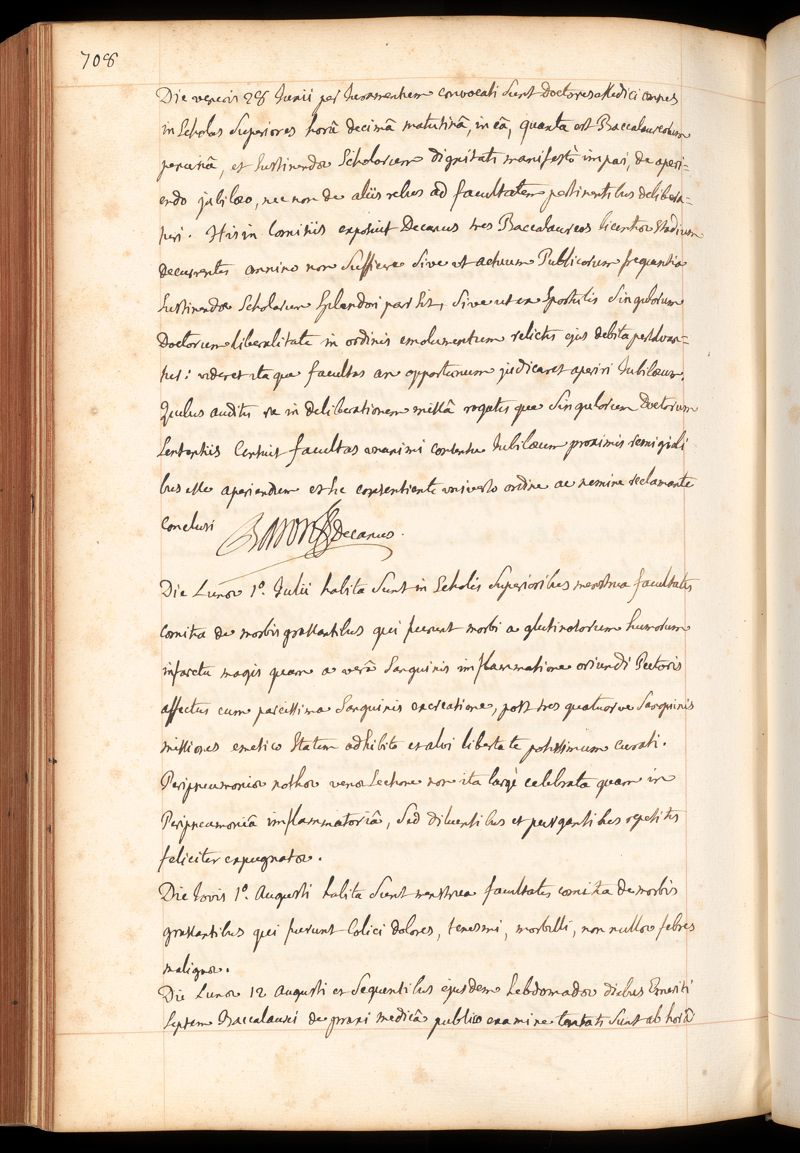 708
Die veneris 28 Junii per Juramentum convocati sunt Doctores Medici omnes
in Scholas Superiores horâ decimâ matutinâ, in eâ, quanta est Baccalaureorum
penuriâ, et sustinendæ Scholarum dignitati manifestò impari, de aperi=
endo jubilæo, nec non de aliis rebus ad facultatem pertinentibus delibera=
turi. His in Comitiis exposuit Decanus tres Baccalaureos licentiæ stadium
decurrentes omnino non sufficere sive ut actuum Publicorum frequentia
sustinendæ Scholarum splendori par sit, sive ut ex sportulis singulorum
Doctorum liberalitate in ordinis emolumentum relictis ejus debita persolvan=
tur: videret itaque facultas an opportunum judicaret aperiri Jubilæum.
Quibus auditis re in deliberationem missâ rogatisque singulorum Doctorum
Sententiis Censuit facultas unanimi consensu Jubilæum proximis remigiali
bus esse aperiendum et sic consentiente universo ordine ac nemine reclamante
conclusi Baron Decanus.
Die Lunæ 1º. Julii habita sunt in Scholis Superioribus menstrua facultatis
comitia de morbis grassantibus qui fuerunt morbi a glutinosorum humorum
infarctu magis quam a verâ sanguinis inflammatione oriundi Pectoris
affectus cum parcissima sanguinis excreatione, post tres quatuorve sanguinis
missiones emetico statim adhibito et alvi libertate potissimum curati.
Peripneumoniæ nothæ venæ Sectione non ita largè celebrata quam in
Peripneumoniâ inflammatoriâ, sed diluentibus et purgantibus repetitis
feliciter expugnatæ.
Die Jovis 1º. Augusti habita sunt menstrua facultatis comitia de morbis
grassantibus qui fuerunt Colici dolores, tenesmi, morbilli, non nullæ febres
malignæ.
Die Lunæ 12 Augusti et sequentibus ejusdem hebdomadæ diebus Emeriti
septem Baccalaurei de praxi medicâ publico examine tentati sunt ab horâ